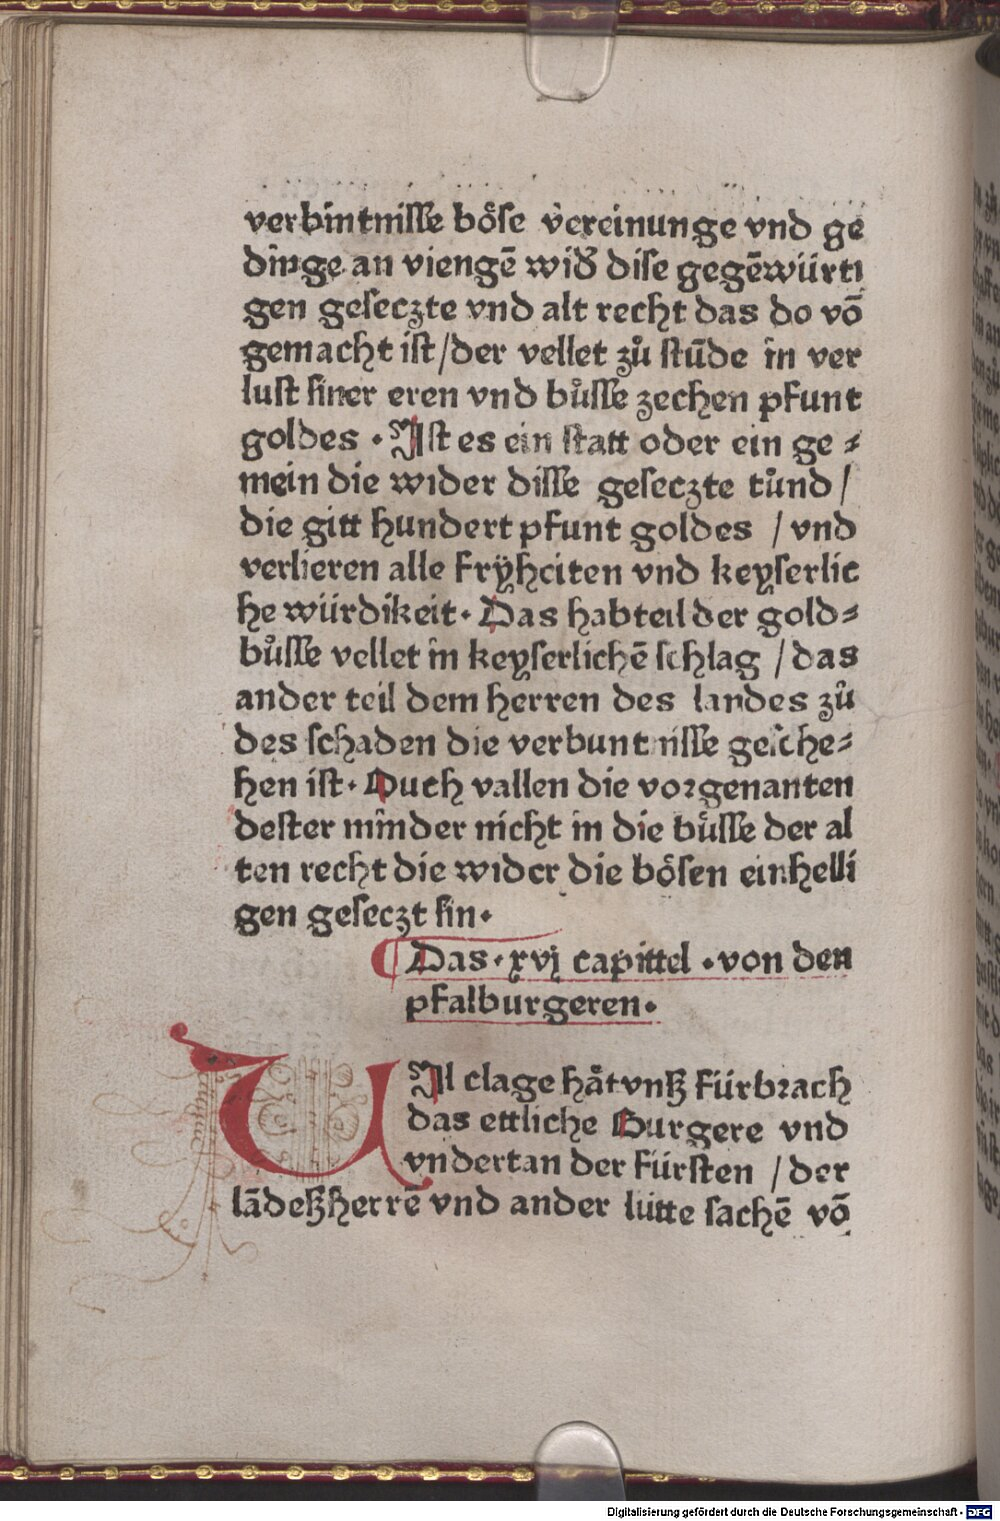 verbintnisse bőse v̇ereinunge vnd ge
dinge an viengē wid̕ dise gegēwürti
gen geseczte vnd alt recht das do vō
gemacht ist/der vellet zů stūde in ver
lust siner eren vnd bůsse zechen pfunt
goldes · Ist es ein statt oder ein ge⸗
mein die wider disse geseczte tůnd/
die gitt hundert pfunt goldes /vnd
verlieren alle fryͤheiten vnd keyserlic
he würdikeit· Das habteil der gold⸗
bůsse vellet in keyserlichē schlag /das
ander teil dem herren des landes zů
des schaden die verbuntnisse gesche⸗
hen ist· Ouch vallen die vorgenanten
dester minder nicht in die bůsse der al
ten recht die wider die bősen einhelli
gen geseczt sin·
Das·xvj capittel ·von den
pfalburgeren·
Uil clage håt vnß fürbrach
das ettliche Burgere vnd
vndertan der fürsten /der
lādeßherrē vnd ander lütte sachē vō
Digitalisierung gefördert durch die Deutsche Forschungsgemeinschaft - DFG